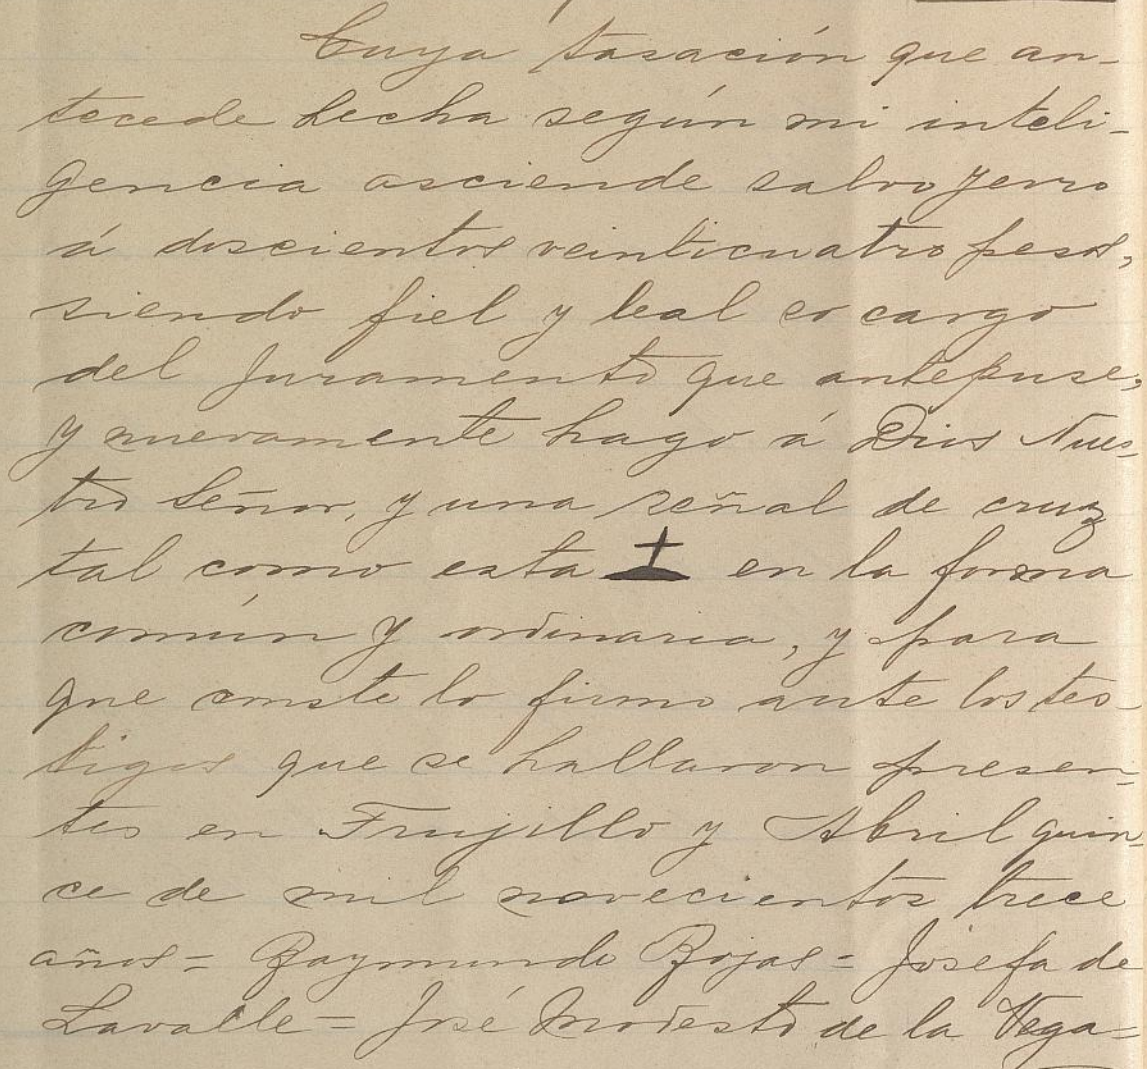 Cuya tasación que an-
tecede hecha según mi inteli-
gencia asciende salvo yerro
á doscientos veinticuatro pesos,
siendo fiel y leal so cargo
del juramento que antepuse,
y nuevamente hago á Dios Nues-
tro Señor, y una señal de cruz
tal como esta en la forma
común y ordinaria, y para
que conste lo firmo ante los tes-
tigos que se hallaron presen-
tes en Trujillo y Abril quin-
ce de mil novecientos trece
años = Raymundo Rojas = Josefa de
Lavalle = José Modesto de la Vega =